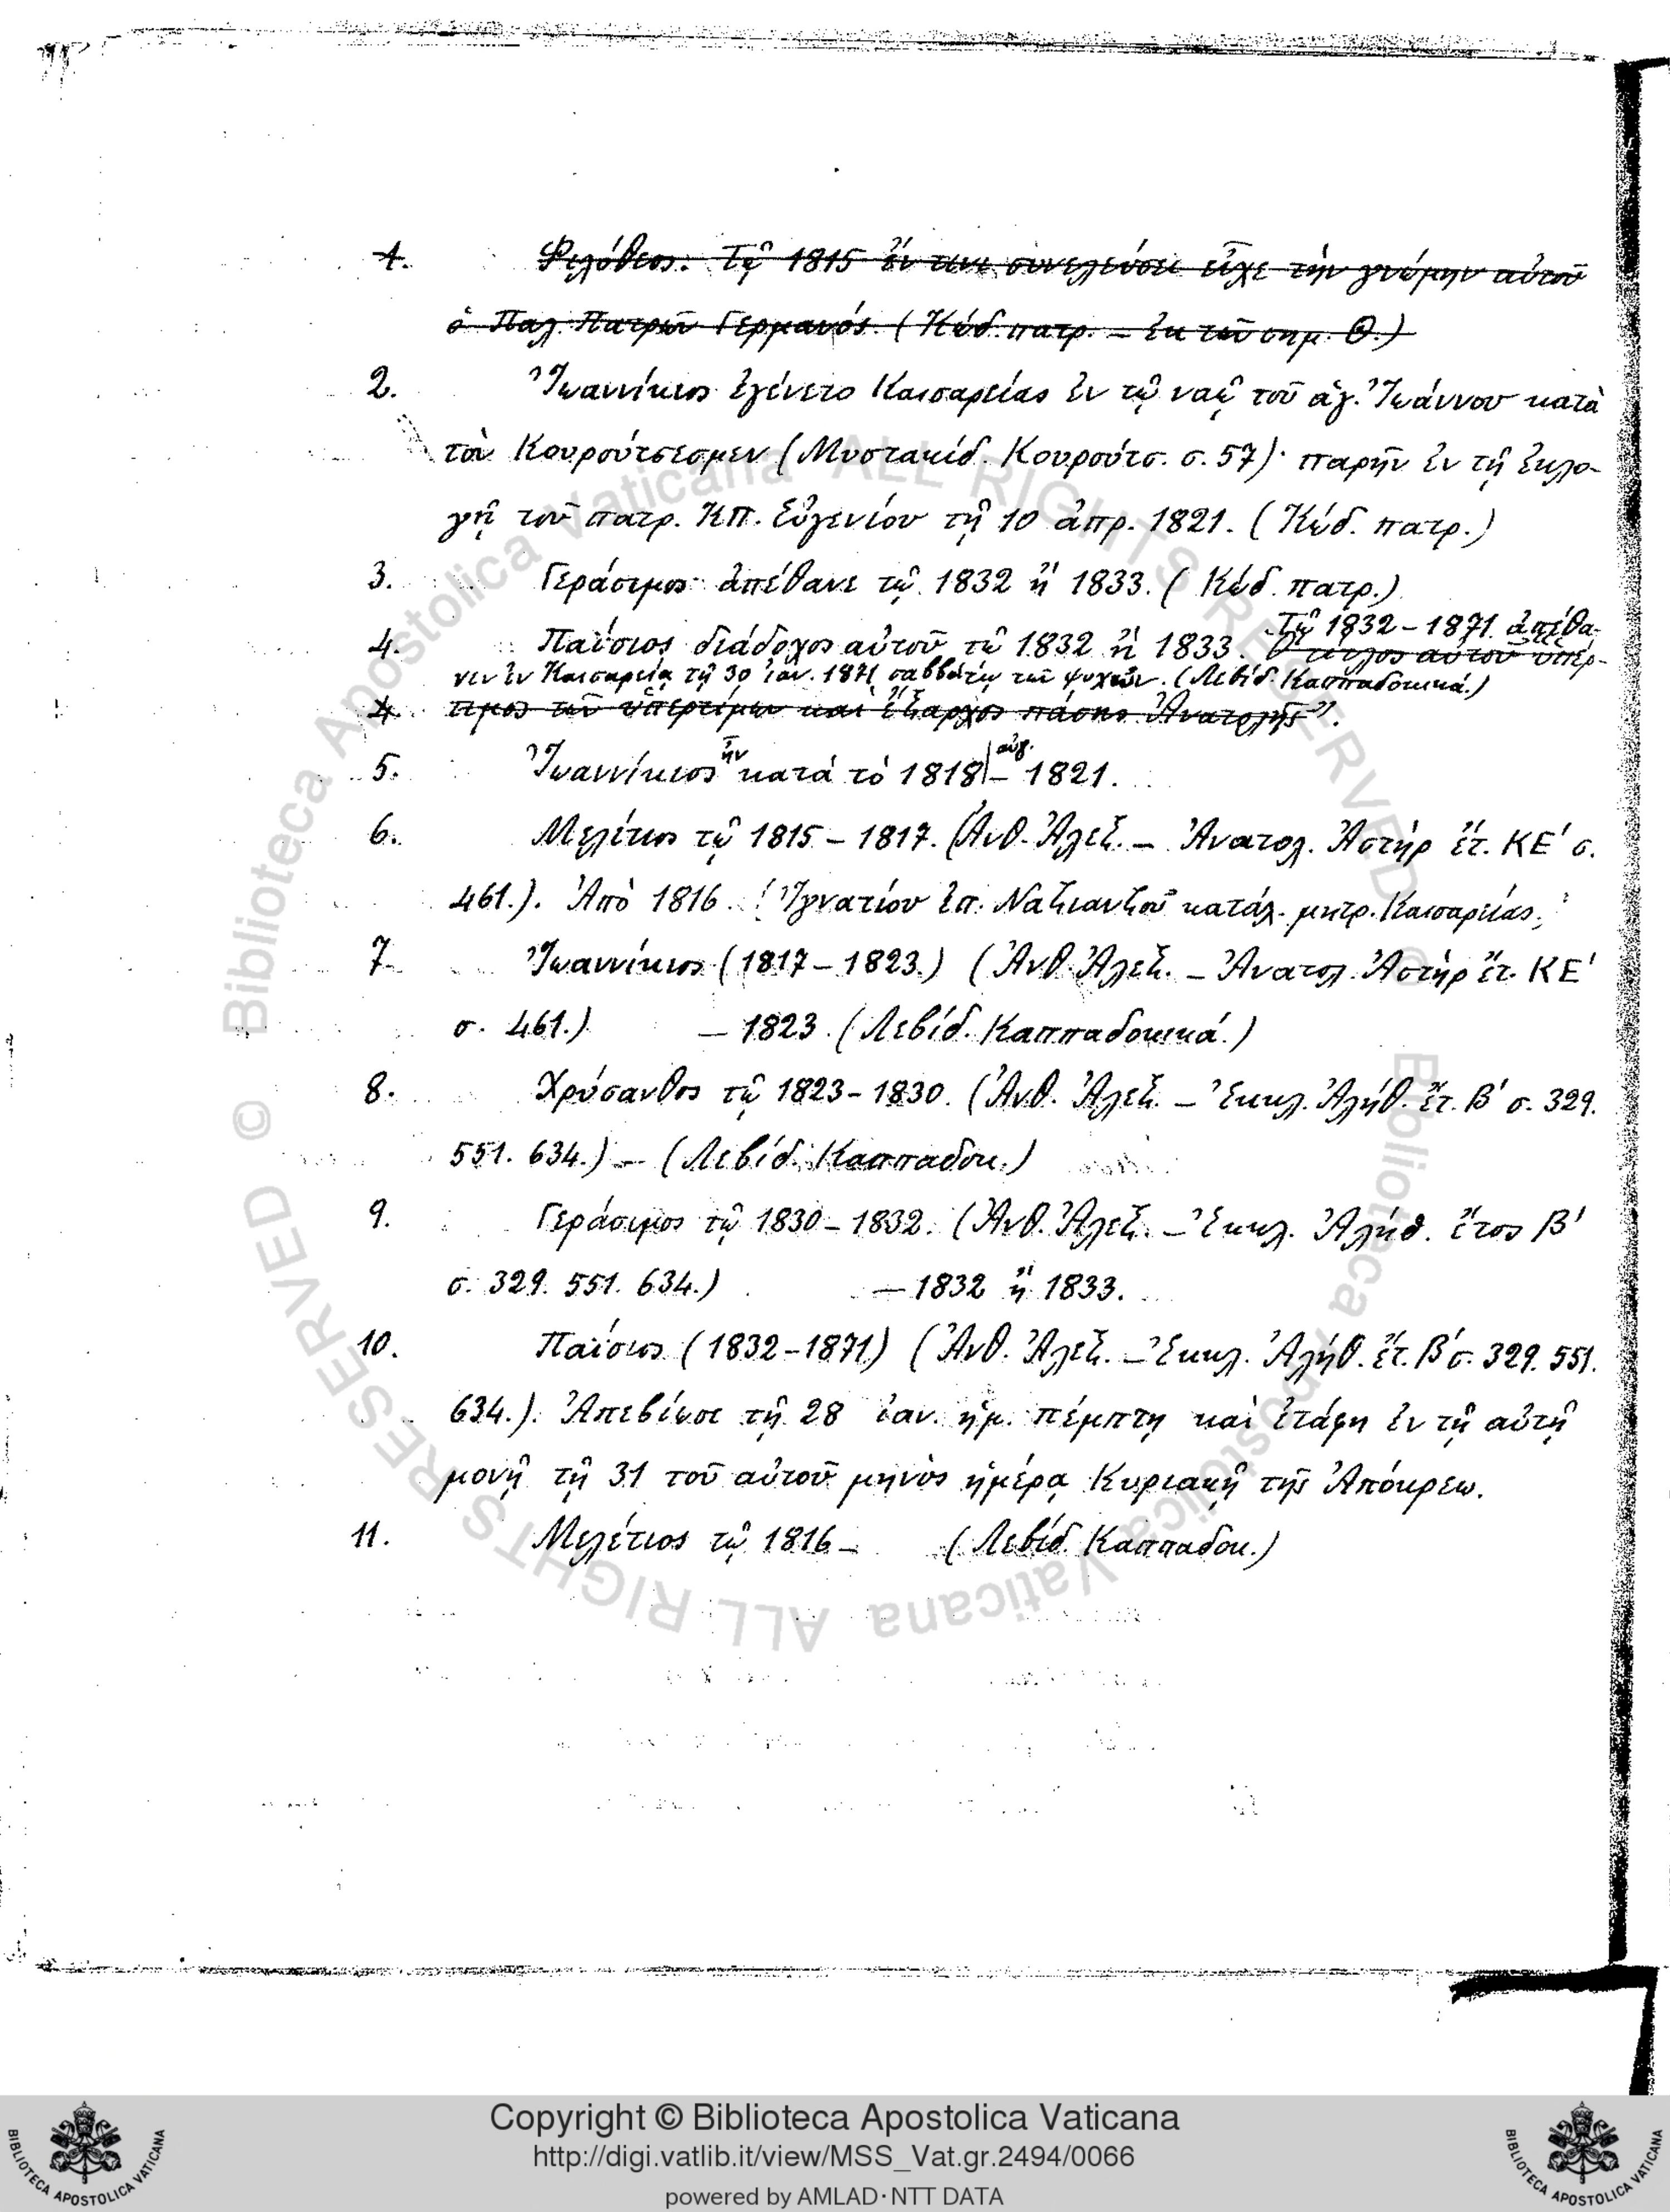 1. Φιλόθεος. Τῷ 1815 ἔν τινι συνελεύσει εἶχε τὴν γνώμην αὐτοῦ
ὁ Παλ. Πατρῶν Γερμανός. (Κώδ. πατρ. – ἐκ τῶν σημ. Θ.)
2. Ἰωαννίκιος ἐγένετο Καισαρείας ἐν τῷ ναῷ τοῦ ἁγ. Ἰωάννου κατὰ
τὸ Κουρούτσεσμεν (Μυστακίδ. Κουρούτσ. σ. 57)· παρῆν ἐν τῇ ἐκλο-
γῇ τοῦ πατρ. ΚΠ. Εὐγενίου τῇ 10 ἀπρ. 1821. (Κώδ. πατρ.)
3. Γεράσιμος ἀπέθανε τῷ 1832 ἢ 1833. (Κώδ. πατρ.)
Τῷ 1832 – 1871 ἀπέθα-
4. Παΐσιος διάδοχος αὐτοῦ τῷ 1832 ἢ 1833. Ὁ τίτλος αὐτοῦ ὑπέρ-
νεν ἐν Καισαρείᾳ τῇ 30 ἰαν. 1871 σαββάτῳ τῶν ψυχῶν. (Λεβίδ. Καππαδοκικά.)
4. τιμος τῶν ὑπερτίμων καὶ ἔξαρχος πάσης Ἀνατολῆς".
ἦν αὐγ.
5. Ἰωαννίκιος κατὰ τὸ 1818 – 1821.
6. Μελέτιος τῷ 1815 – 1817. (Ἀνθ. Ἀλεξ. – Ἀνατολ. Ἀστὴρ ἔτ. ΚΕ' σ.
461.). Ἀπὸ 1816. (Ἰγνατίου ἐπ. Ναζιανζοῦ κατάλ. μητρ. Καισαρείας.
7. Ἰωαννίκιος (1817 – 1823.) (Ἀνθ. Ἀλεξ. – Ἀνατολ. Ἀστὴρ ἔτ. ΚΕ'
σ. 461.) – 1823. (Λεβίδ. Καππαδοκικά.)
8. Χρύσανθος τῷ 1823 – 1830. (Ἀνθ. Ἀλεξ. – Ἐκκλ. Ἀλήθ. ἔτ. Β' σ. 329.
551. 634.) – (Λεβίδ. Καππαδοκ.)
9. Γεράσιμος τῷ 1830 – 1832. (Ἀνθ. Ἀλεξ. – Ἐκκλ. Ἀλήθ. ἔτος Β'
σ. 329. 551. 634.) – 1832 ἢ 1833.
10. Παΐσιος (1832 – 1871) (Ἀνθ. Ἀλεξ. – Ἐκκλ. Ἀλήθ. ἔτ. Β' σ. 329. 551.
634.). Ἀπεβίωσε τῇ 28 ἰαν. ἡμ. πέμπτῃ καὶ ἐτάφη ἐν τῇ αὐτῇ
μονῇ τῇ 31 τοῦ αὐτοῦ μηνὸς ἡμέρᾳ Κυριακῇ τῆς Ἀπόκρεω.
11. Μελέτιος τῷ 1816 – (Λεβίδ. Καππαδοκ.)
© Biblioteca Apostolica Vaticana ALL RIGHTS RESERVED
© Biblioteca Apostolica Vaticana ALL RIGHTS RESERVED
Copyright © Biblioteca Apostolica Vaticana
http://digi.vatlib.it/view/MSS_Vat.gr.2494/0066
powered by AMLAD·NTT DATA
BIBLIOTECA APOSTOLICA VATICANA
BIBLIOTECA APOSTOLICA VATICANA